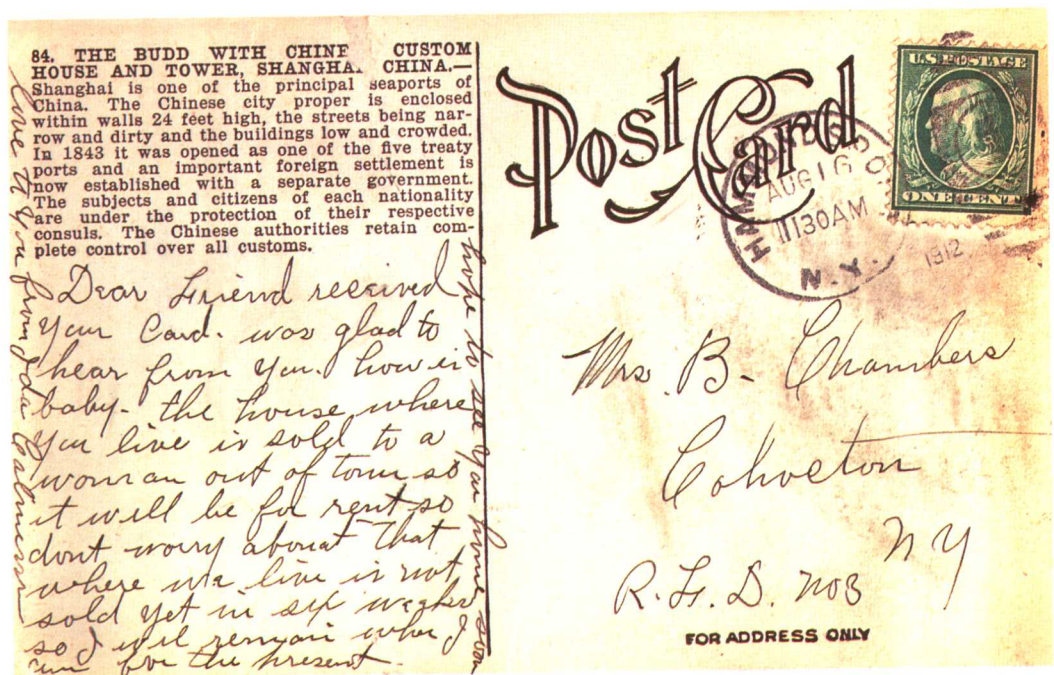 84. THE BUDD WITH CHINE CUSTOM
HOUSE AND TOWER, SHANGHA CHINA.—
Shanghai is one of the principal seaports of
China. The Chinese city proper is enclosed
within walls 24 feet high, the streets being nar-
row and dirty and the buildings low and crowded.
In 1843 it was opened as one of the five treaty
ports and an important foreign settlement is
now established with a separate government.
The subjects and citizens of each nationality
are under the protection of their respective
consuls. The Chinese authorities retain com-
plete control over all customs.
Dear Friend received
your Card. was glad to
hear from you. how is
baby. the house where
you live is sold to a
woman out of town so
it will be for rent so
dont worry about that
where we live is not
sold yet in six weeks
so I will remain wher I
am for the present
hope to see you home soon
love to you from Ida
Post Card
U.S. POSTAGE
ONE CENT
HAMMONDSPO
AUG 16
1130AM
1912
N.Y.
Mrs B. Chambers
Cohocton
N Y
R. F. D. No3
FOR ADDRESS ONLY